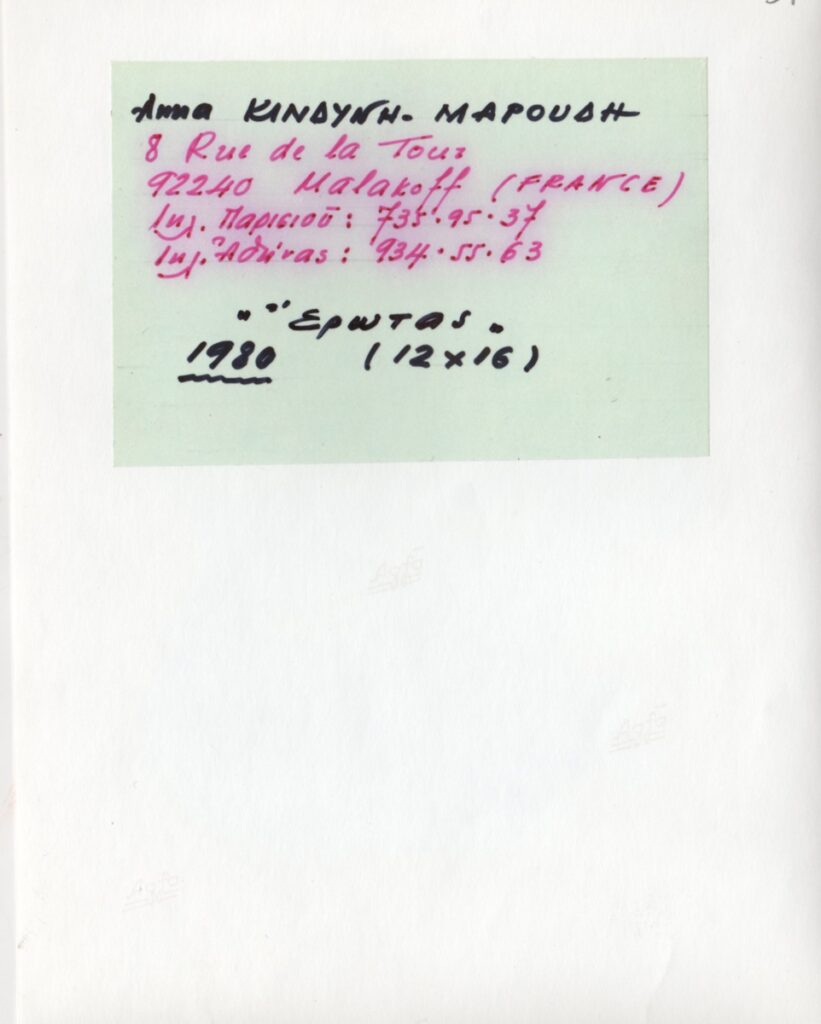 Άννα ΚΙΝΔΥΝΗ - ΜΑΡΟΥΔΗ
8 Rue de la Tour
92240 Malakoff (FRANCE)
Τηλ. Παρισιού : 735.95.37
Τηλ. Ἀθήνας : 934.55.63
"Ἔρωτας"
1980 (12x16)
Agfa
Agfa
Agfa